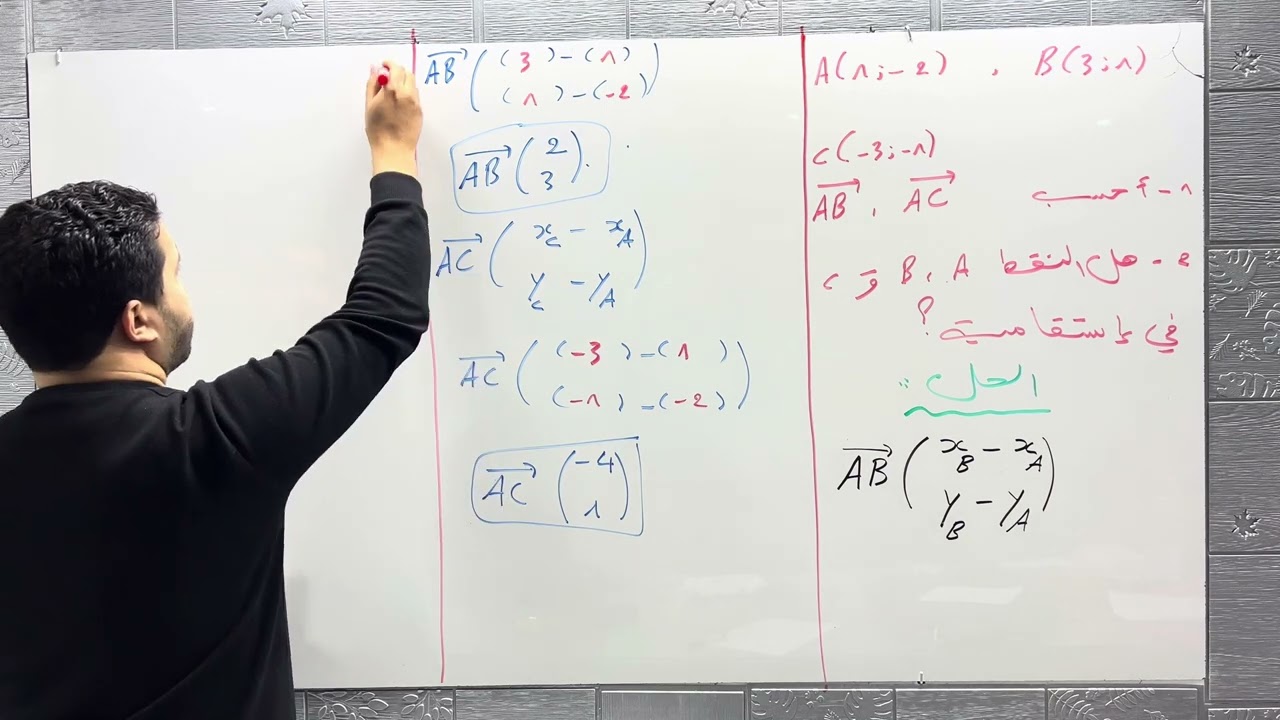 A(1;-2) , B(3;1)
C(-3;-1)
1 - أحسب $\overrightarrow{AB}$ , $\overrightarrow{AC}$
2 - هل النقط A , B و C
في إستقامية ؟
الحل :
$\overrightarrow{AB}\begin{pmatrix} x_B - x_A \\ y_B - y_A \end{pmatrix}$
$\overrightarrow{AB}\begin{pmatrix} (3) - (1) \\ (1) - (-2) \end{pmatrix}$
$\overrightarrow{AB}\begin{pmatrix} 2 \\ 3 \end{pmatrix}$.
$\overrightarrow{AC}\begin{pmatrix} x_C - x_A \\ y_C - y_A \end{pmatrix}$
$\overrightarrow{AC}\begin{pmatrix} (-3) - (1) \\ (-1) - (-2) \end{pmatrix}$
$\overrightarrow{AC}\begin{pmatrix} -4 \\ 1 \end{pmatrix}$